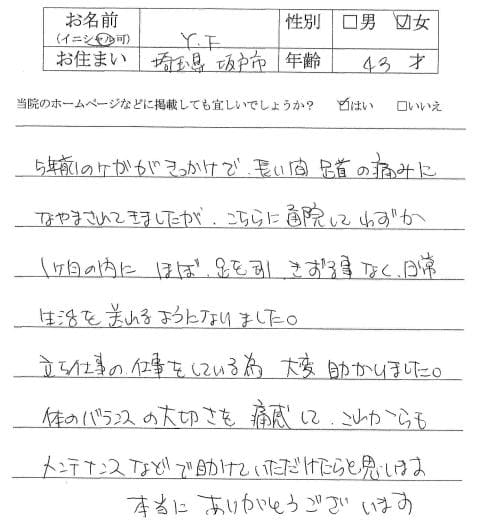 お名前 Y.F 性別 □男 ☑女
(イニシャル可)
お住まい 埼玉県 坂戸市 年齢 43 才
当院のホームページなどに掲載しても宜しいでしょうか? ☑はい □いいえ
5年前のケガがきっかけで、長い間 足首の痛みに
なやまされてきましたが、こちらに通院してわずか
1ヶ月の内に ほぼ、足を引きずる事なく、日常
生活を送れるようになりました。
立ち仕事の仕事をしている為 大変助かりました。
体のバランスの大切さを 痛感して、これからも
メンテナンスなどで助けていただけたらと思います
本当に ありがとうござ います